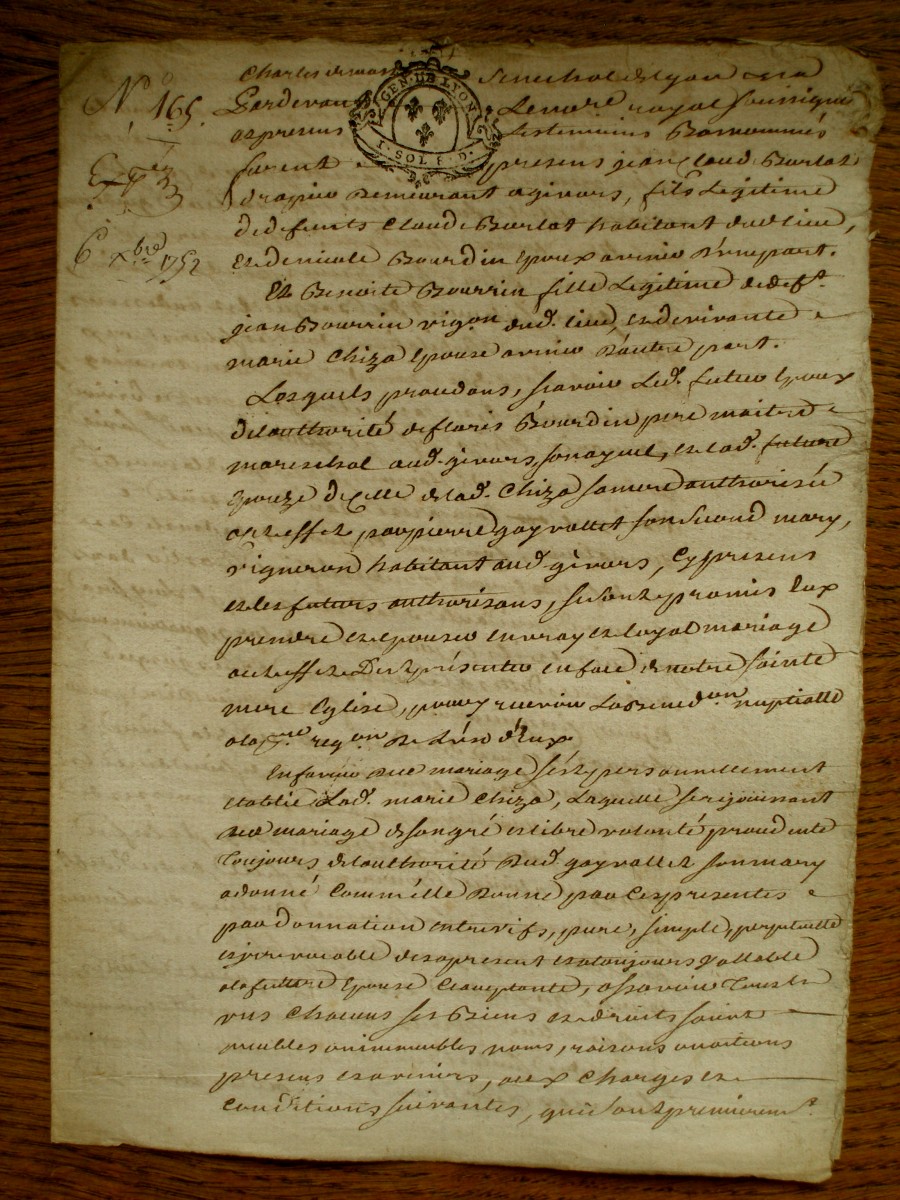 N.º 165.
Exped.
6 xbre 1752
GEN. DE LYON
1. SOL 8. D.
Charles de masso Senechal de Lyon
Pardevant Le no.re royal soussigné
et presens Les temoins Bas nommés
furent presens jean Claude Burlat
drapier demeurant a givors, fils Legitime
de defunts Claude Burlat habitant dud. lieu,
et de nicole Bourdin Epoux avenir d'une part.
Et Benoite Bourrin fille Legitime de def.t
jean Bourrin vig.on dud. lieu, et de vivante
marie Chiza Epouse avenir d'autre part.
Lesquels procedans, savoir Led. futur Epoux
de l'authorité de floris Bourdin pere maitre
mareschal aud. givors, son ayeul, et lad. future
Epouze de Celle de lad. Chiza sa mere authorisée
a cet effet, par pierre gayvallet son second mary,
vigneron habitant aud. givors, Cy presens
et les futurs authorisans, se sont promis Eux
prendre et epouser en vray et loyal mariage
a cet effet De se présenter en face de notre Sainte
mere Eglise, pour y recevoir La Bened.on nuptialle
a la p.re req.on De L'un d'Eux
En faveur Duq. mariage s'est personnellement
etablie Lad. marie Chiza, Laquelle se rejouissant
dud. mariage de son gré et libre volonté procedente
Toujours de l'authorité Dud. gayvallet son mary
a donné Comm'elle Donne par Ces presentes
par donnation entrevifs, pure, simple, perpetuelle
et irrevocable des a present et a toujours vallable
a la future Epouse Acceptante, a savoir Tous Et
uns Chacuns ses Biens et droits soient
meubles ou immeubles noms, raisons ou actions
presens et avenirs, aux Charges et
Conditions suivantes, qui sont premierem.t